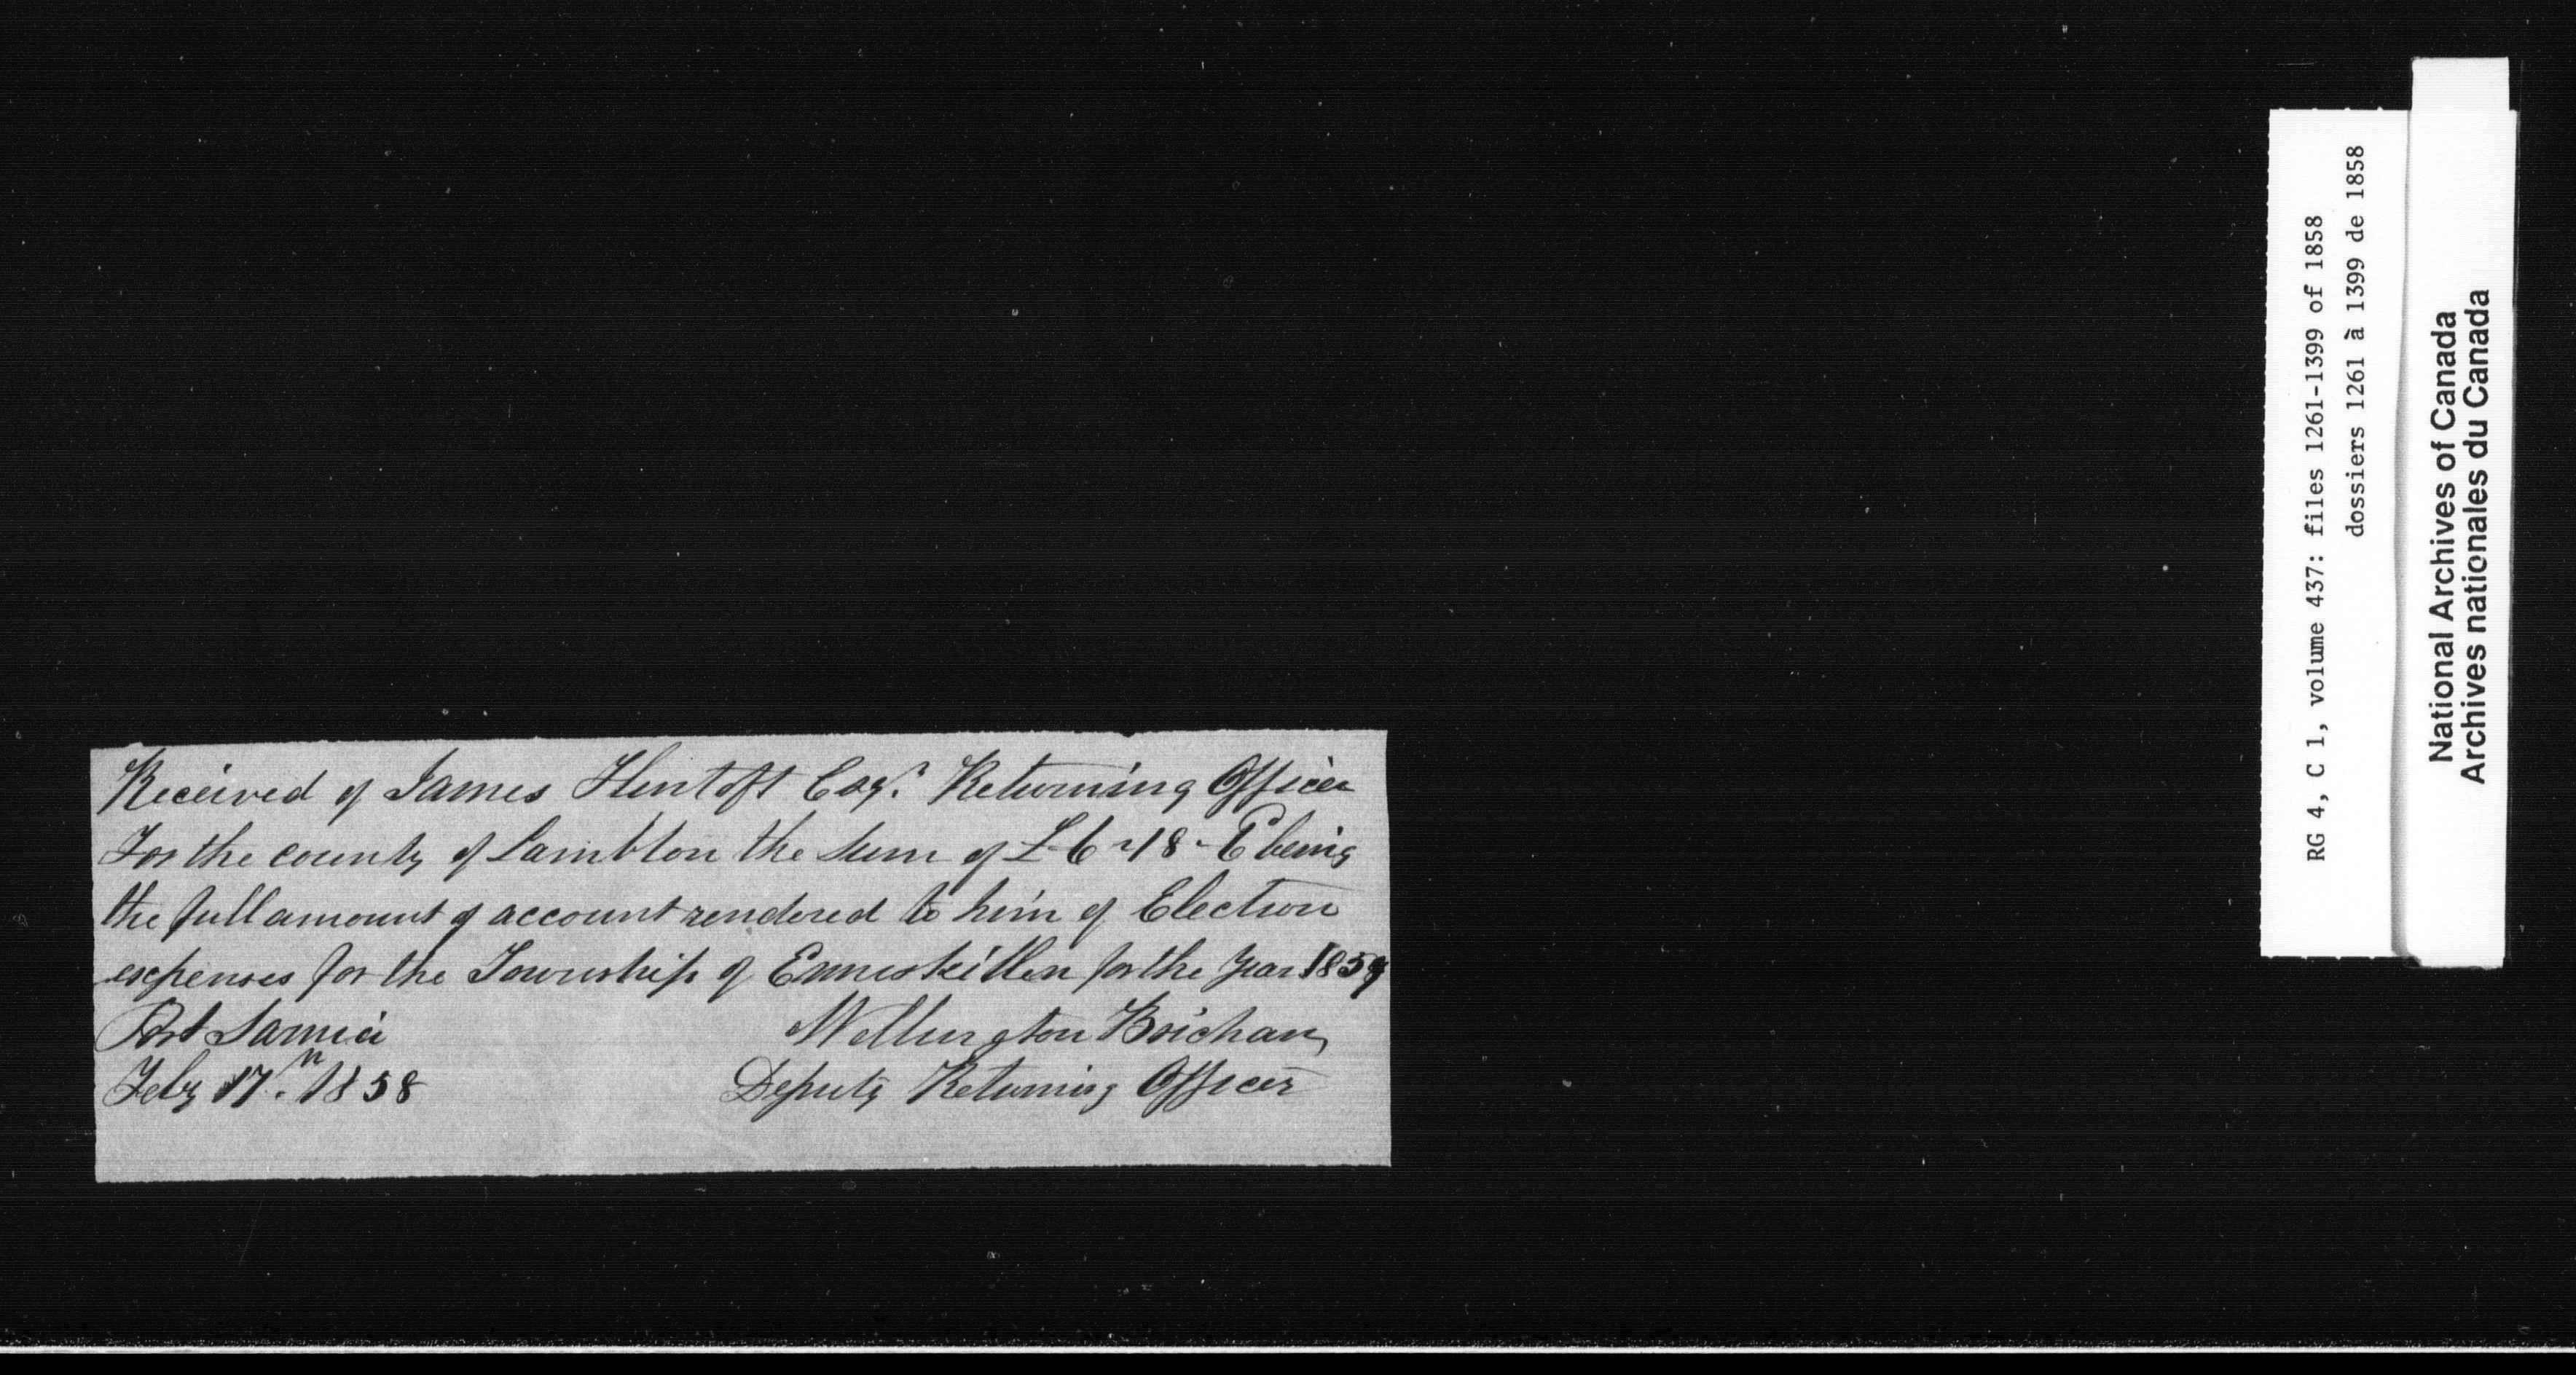 Received of James Flintoft Esqr. Returning Officer
For the county of Lambton the Sum of £6-18-6 being
the full amount of account rendered to him of Election
expenses for the Township of Enniskillen for the Year 185
Port Sarnia
Wellington Brichan
Feby 17th. 1858
Deputy Returning Officer
RG 4, C 1, volume 437: files 1261-1399 of 1858
dossiers 1261 à 1399 de 1858
National Archives of Canada
Archives nationales du Canada